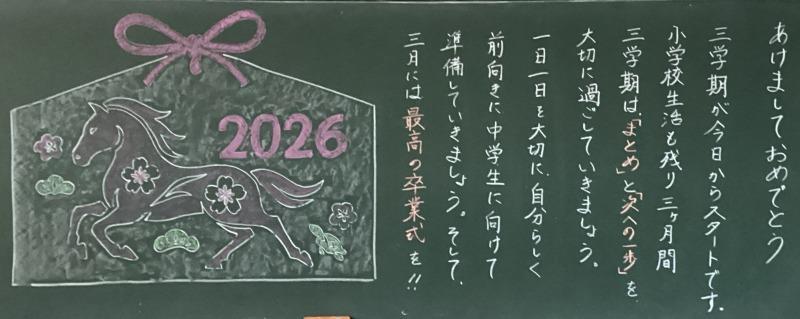 あけましておめでとう
三学期が今日からスタートです。
小学校生活も残り三ヶ月間
三学期は「まとめ」と「次への一歩」を
大切に過ごしていきましょう。
一日一日を大切に、自分らしく
前向きに中学生に向けて
準備していきましょう。そして、
三月には最高の卒業式を!!
2026